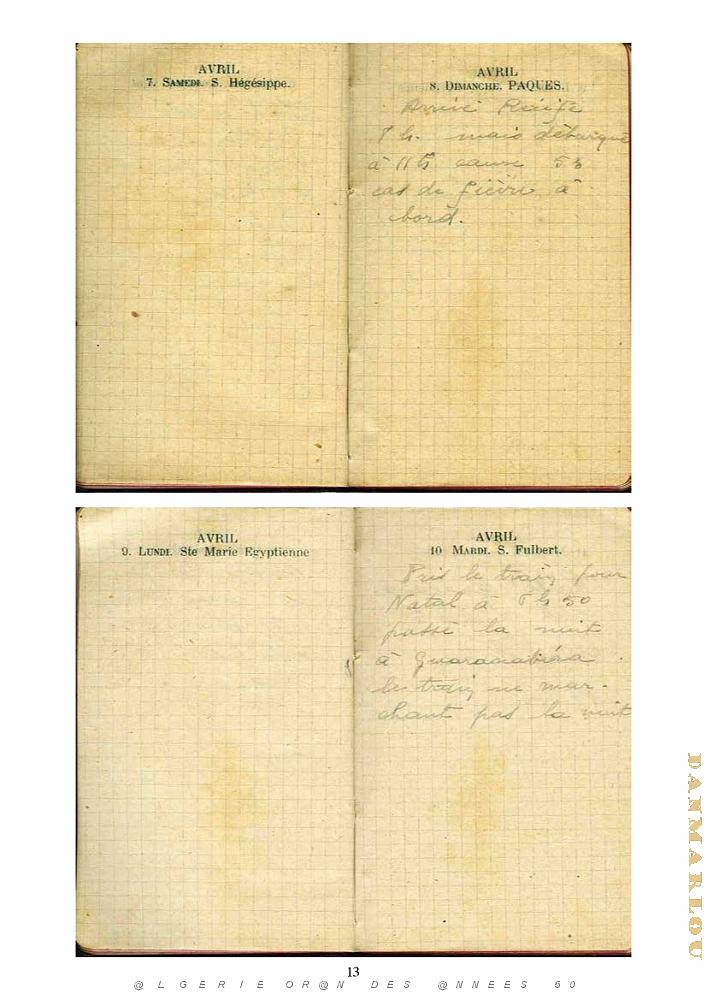 AVRIL
7. SAMEDI. S. Hégésippe.
AVRIL
8. DIMANCHE. PAQUES.
Arrivé
h. mais débarqué
à 11 h cause 53
cas de fièvre à
bord.
AVRIL
9. LUNDI. Ste Marie Egyptienne
AVRIL
10 MARDI. S. Fulbert.
Pris le train pour
Natal à 6 h 50
passé la nuit
à Guaranabira
le train ne mar-
chant pas la nuit
DANMARLOU
13
@ L G E R I E O R @ N D E S @ N N E E S 5 0